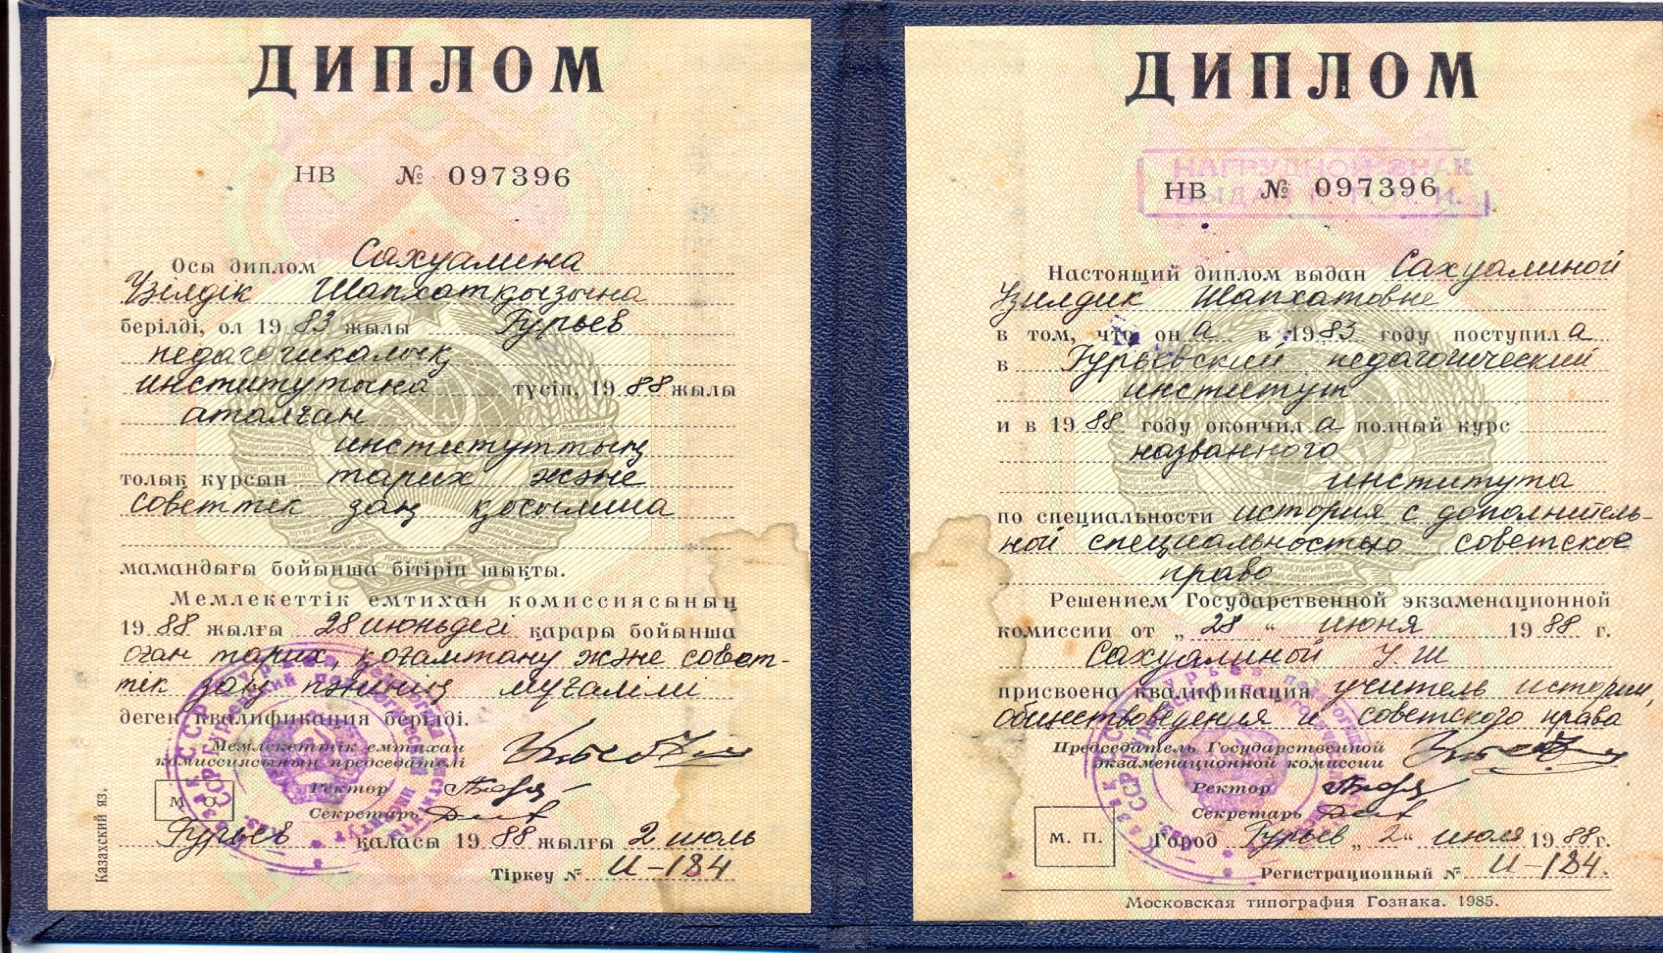 ДИПЛОМ
НВ № 097396
Осы диплом Сахуалина
Үзілдік Шапхатқызына
берілді, ол 1983 жылы Гурьев
педагогикалық
институтына түсіп, 1988 жылы
аталған
институттың
толық курсын тарих және
советтік заң қосымша
мамандығы бойынша бітіріп шықты.
Мемлекеттік емтихан комиссиясының
1988 жылғы 28 июньдегі қарары бойынша
оған тарих, қоғамтану және совет-
тік заң пәнінің мұғалімі
деген квалификация берілді.
Мемлекеттік емтихан
комиссиясының председателі
Ректор
Секретарь
М. О.
Гурьев қаласы 1988 жылғы 2 июль
Тіркеу № И-184
Казахский яз.
ДИПЛОМ
НАГРУДНОЙ ЗНАК
НВ № 097396
Настоящий диплом выдан Сахуалиной
Узилдик Шапхатовне
в том, что он а в 1983 году поступил а
в Гурьевский педагогический
институт
и в 1988 году окончил а полный курс
названного
института
по специальности история с дополнитель-
ной специальностью советское
право
Решением Государственной экзаменационной
комиссии от „ 28 “ июня 1988 г.
Сахуалиной У.Ш
присвоена квалификация учитель истории,
обществоведения и советского права
Председатель Государственной
экзаменационной комиссии
Ректор
Секретарь
М. П.
Город Гурьев „ 2 “ июля 1988 г.
Регистрационный № И-184.
Московская типография Гознака. 1985.